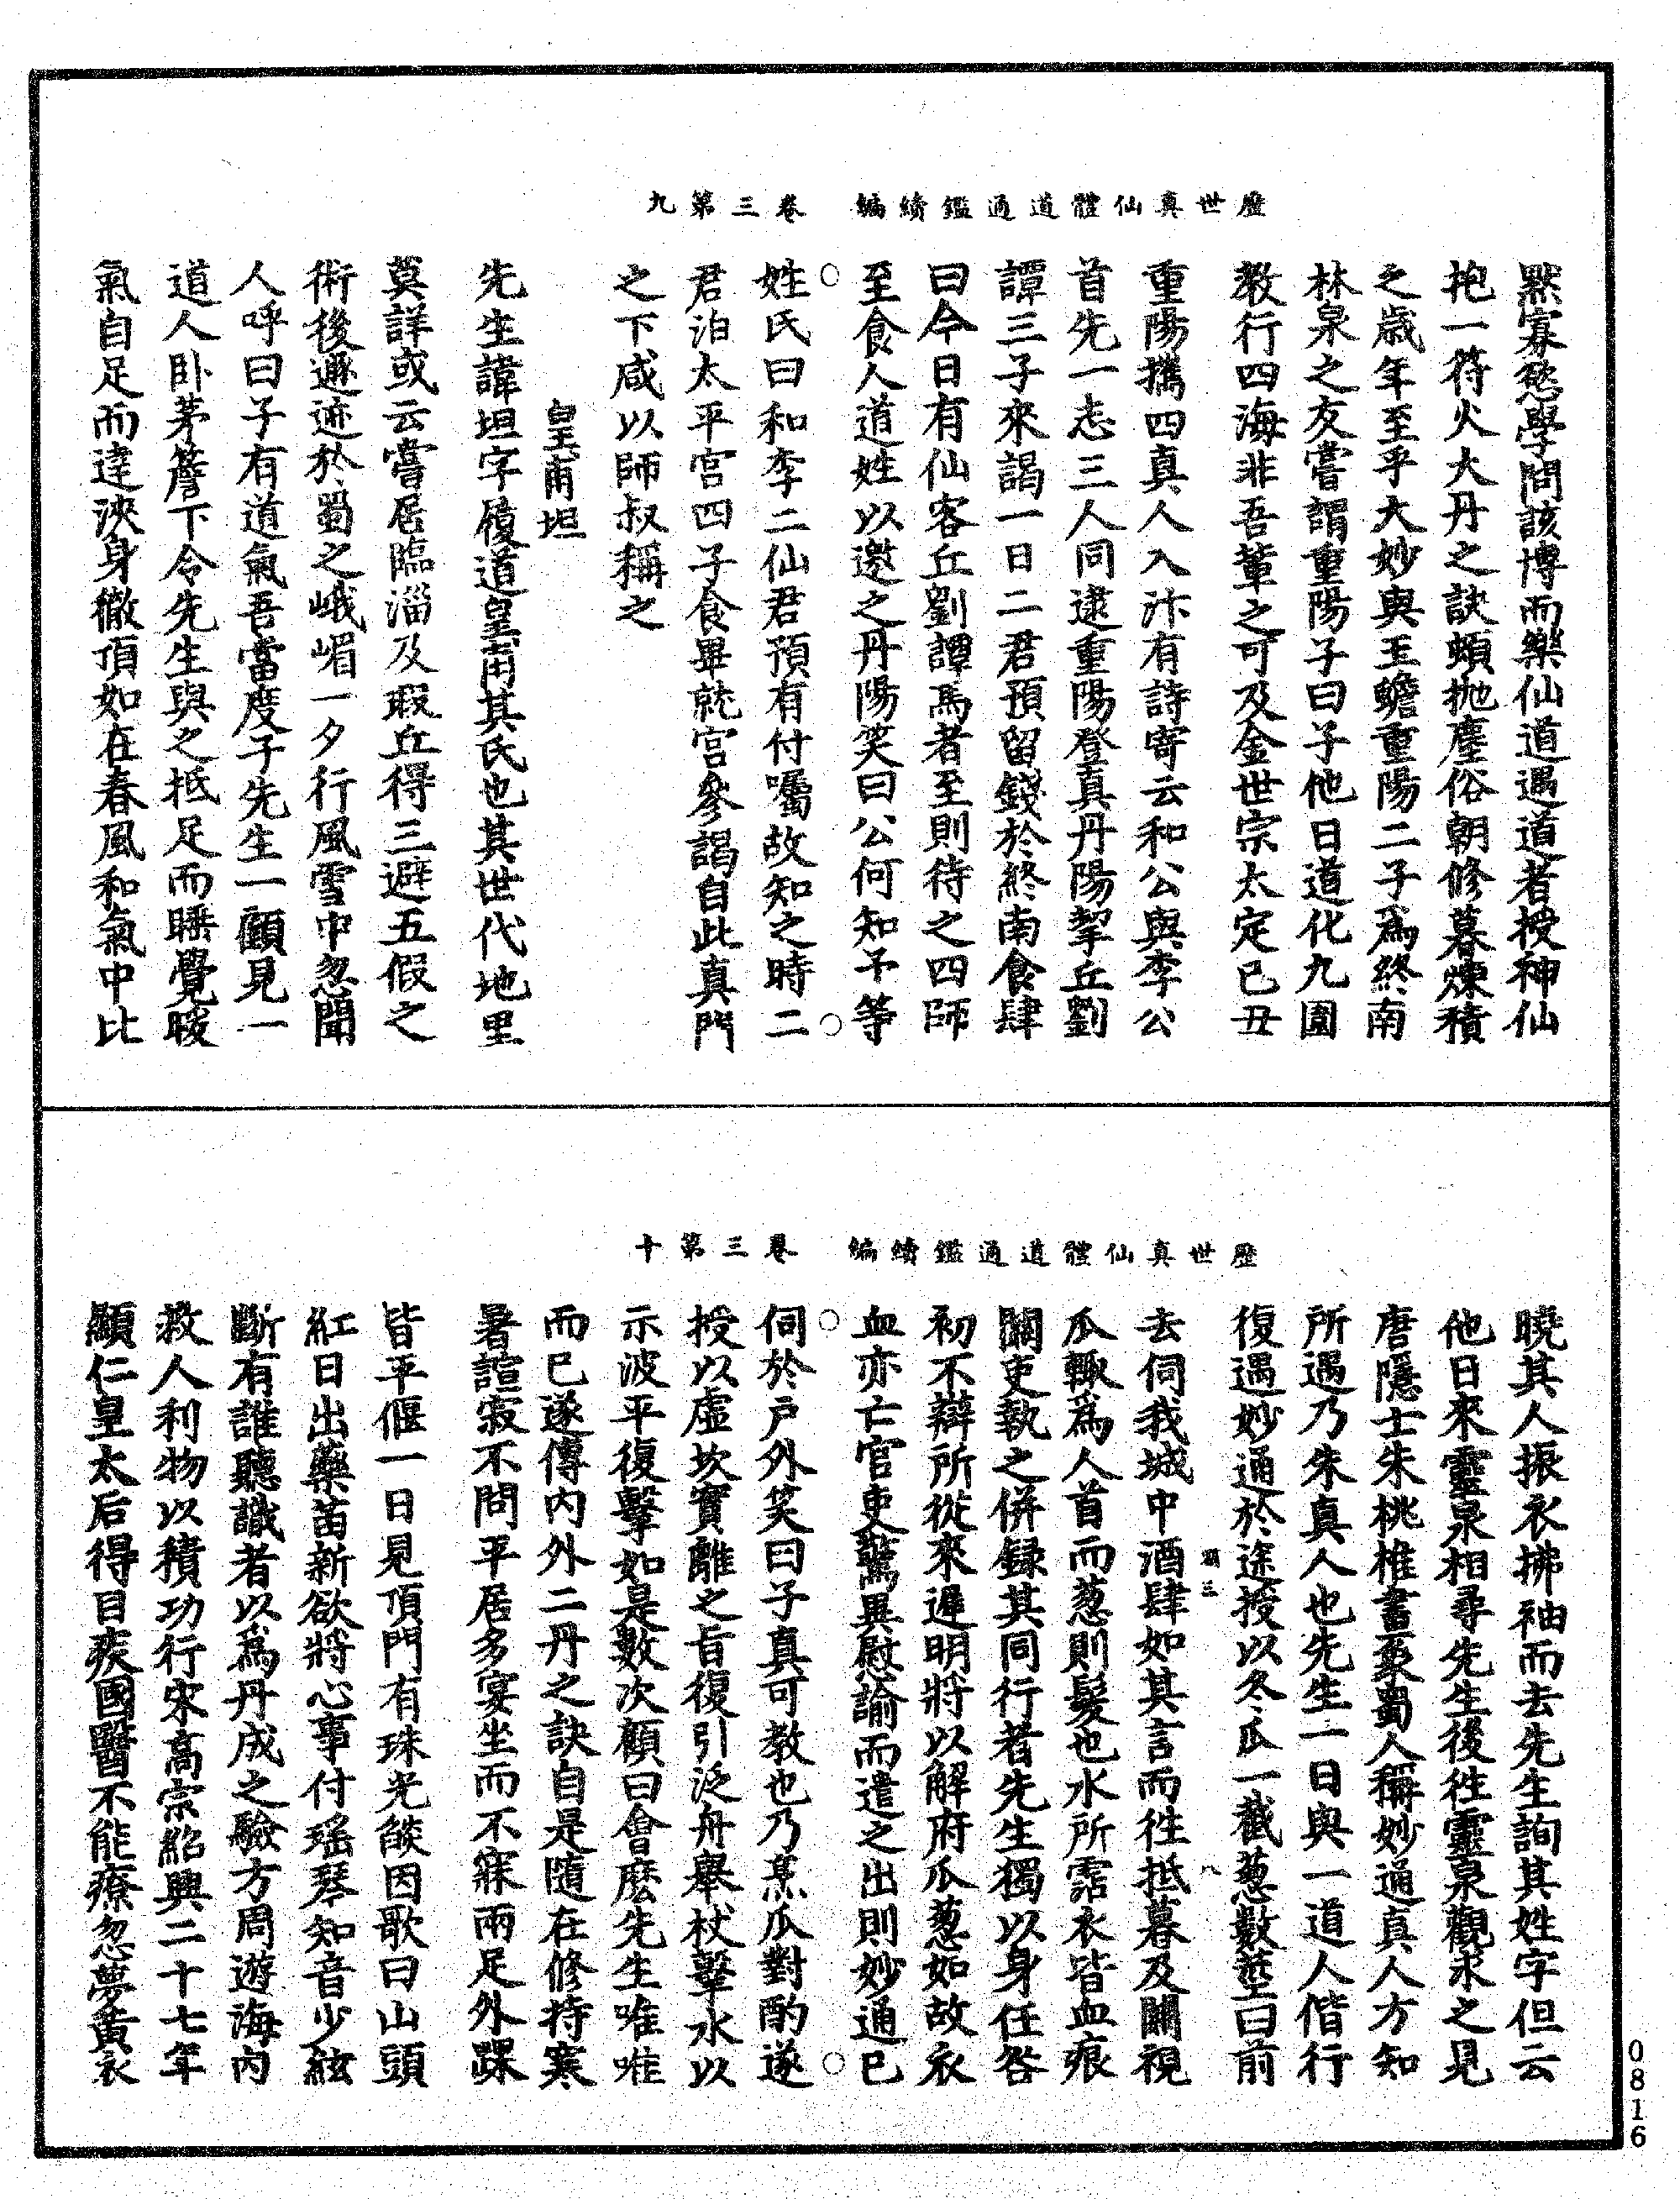 歷世真仙體道通鑑續編　卷三第九
默寡慾學問該博而樂仙道遇道者授神仙
抱一符火大丹之訣頻抛塵俗朝修暮煉積
之歲年至乎大妙與玉蟾重陽二子爲終南
林泉之友嘗謂重陽子曰子他日道化九圍
教行四海非吾輩之可及金世宗太定已丑
重陽攜四真人入汴有詩寄云和公與李公
首先一志三人同逮重陽登真丹陽挈丘劉
譚三子來謁一日二君預留錢於終南食肆
曰今日有仙客丘劉譚馬者至則待之四師
至食人道姓以邀之丹陽笑曰公何知予等
姓氏曰和李二仙君預有付囑故知之時二
君泊太平宮四子食畢就宮參謁自此真門
之下咸以師叔稱之
皇甫坦
先生諱坦字履道皇甫其氏也其世代地里
莫詳或云嘗居臨淄及瑕丘得三避五假之
術後遯迹於蜀之峨嵋一夕行風雪中忽聞
人呼曰子有道氣吾當度子先生一顧見一
道人卧茅簷下令先生與之抵足而睡覺暖
氣自足而達浹身徹頂如在春風和氣中比
歷世真仙體道通鑑續編　卷三第十
曉其人振衣拂袖而去先生詢其姓字但云
他日來靈泉相尋先生後徃靈泉觀求之見
唐隱士朱桃椎書䂓蜀人稱妙通真人方知
所遇乃朱真人也先生一日與一道人偕行
復遇妙通於途授以冬瓜一截葱數莖曰前
去伺我城中酒肆如其言而徃抵暮及關視
瓜輙爲人首而葱則髮也水所霑衣皆血痕
關吏執之併録其同行者先生獨以身任咎
初不辯所從來遲明將以解府瓜葱如故衣
血亦亡官吏驚異慰諭而遣之出則妙通已
伺於戶外笑曰子真可教也乃烹瓜對酌遂
授以虛坎實離之旨復引泛舟舉杖擊水以
示波平復擊如是數次顧曰會麽先生唯唯
而已遂傳内外二丹之訣自是隨在修持寒
暑諠寂不問平居多宴坐而不寐兩足外踝
皆平偃一日見頂門有珠光燄因歌曰山頭
紅日出藥苗新欲將心事付瑶琴知音少絃
斷有誰聽識者以爲丹成之驗方周遊海内
救人利物以積功行宋高宗紹興二十七年
顯仁皇太后得目疾國醫不能療忽夢黄衣
0816